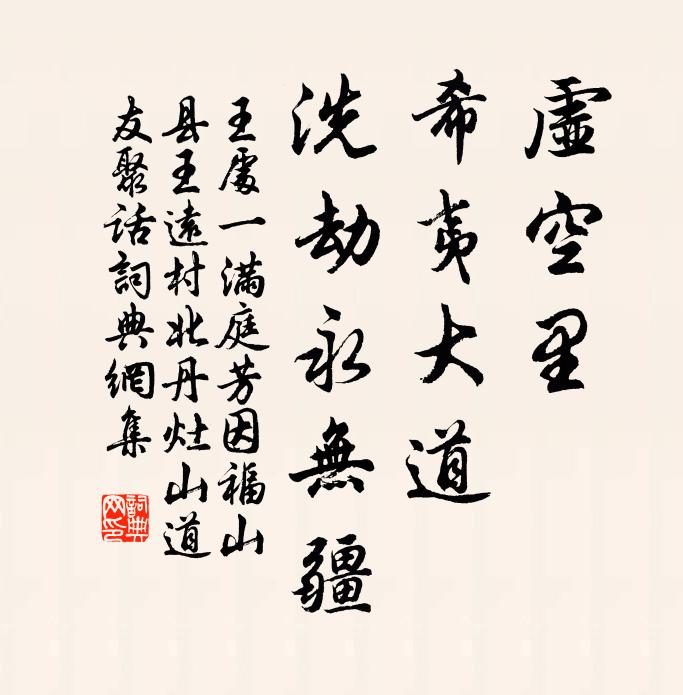 虛空里
希夷大道
洗劫永無疆
王處一滿庭芳因福山
县王遠村北丹灶山道
友聚话詞典網集
詞典网印